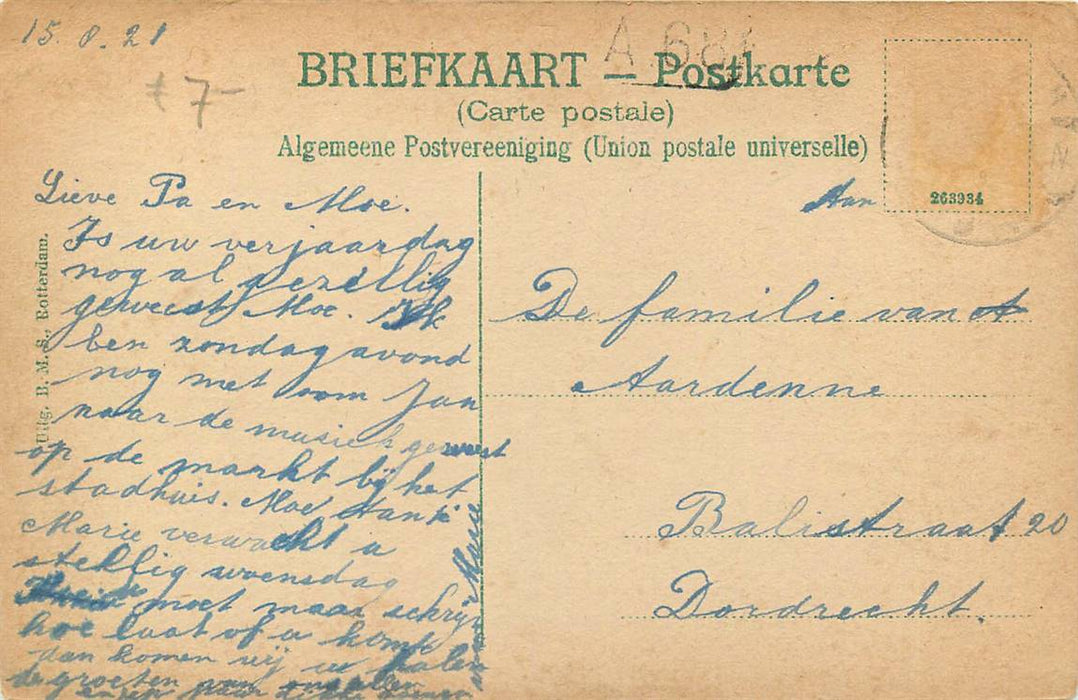 15.8.21
7-
A 681
BRIEFKAART — Postkarte
(Carte postale)
Algemeene Postvereeniging (Union postale universelle)
263934
Uitg. B. M. S., Rotterdam.
Lieve Pa en Moe.
Is uw verjaardag
nog al gezellig
geweest Moe. Ik
ben zondag avond
nog met oom Jan
naar de musiek geweest
op de markt bij het
stadhuis. Moe tante
Marie verwacht u
stellig woensdag
moet maar schrijven
hoe laat of u komt
dan komen wij u halen
de groeten van ons allen
en een paar
Aan
De familie van
Aardenne
Balistraat 20
Dordrecht.